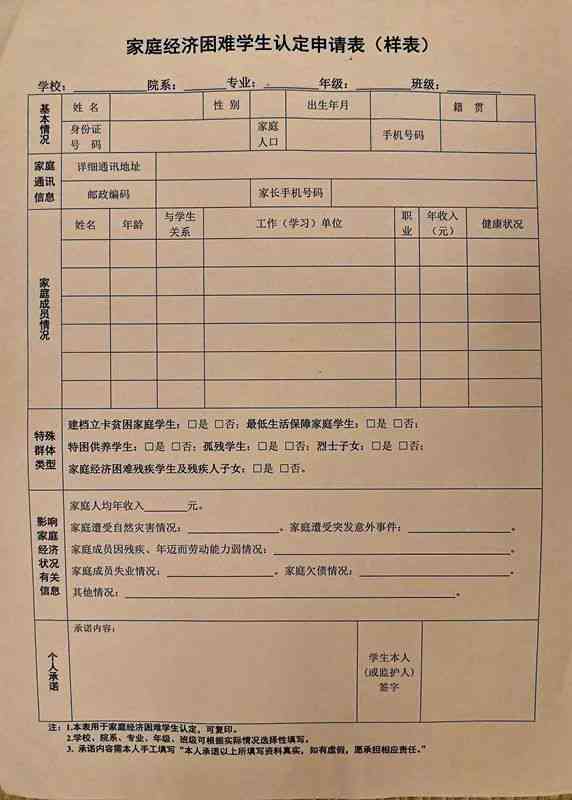 家庭经济困难学生认定申请表（样表）
学校：________ 院系：________ 专业：________ 年级：________ 班级：________
基本情况 姓 名 性 别 出生年月 籍 贯
身份证号 码 家庭人口 手机号码
家庭通讯信息 详细通讯地址
邮政编码 家长手机号码
家庭成员情况 姓名 年龄 与学生关系 工作（学习）单位 职业 年收入（元） 健康状况
特殊群体类型 建档立卡贫困家庭学生：□是 □否；最低生活保障家庭学生：□是 □否；
特困供养学生：□是 □否；孤残学生：□是 □否；烈士子女：□是 □否；
家庭经济困难残疾学生及残疾人子女：□是 □否。
影响家庭经济状况有关信息 家庭人均年收入______元。
家庭遭受自然灾害情况：____________。家庭遭受突发意外事件：____________。
家庭成员因残疾、年迈而劳动能力弱情况：____________________________。
家庭成员失业情况：____________。家庭欠债情况：____________。
其他情况：____________________________________。
个人承诺 承诺内容： 学生本人（或监护人）签字
注：1.本表用于家庭经济困难学生认定，可复印。
2.学校、院系、专业、年级、班级可根据实际情况选择性填写。
3. 承诺内容需本人手工填写“本人承诺以上所填写资料真实，如有虚假，愿承担相应责任。”